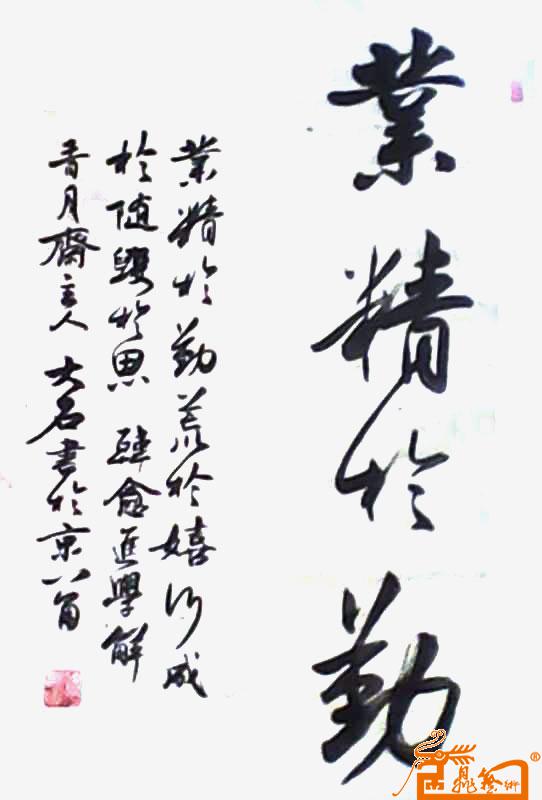 業精於勤
業精於勤荒於嬉行成
於随毀於思 韓愈進學解
月齋主人 大名書於京八